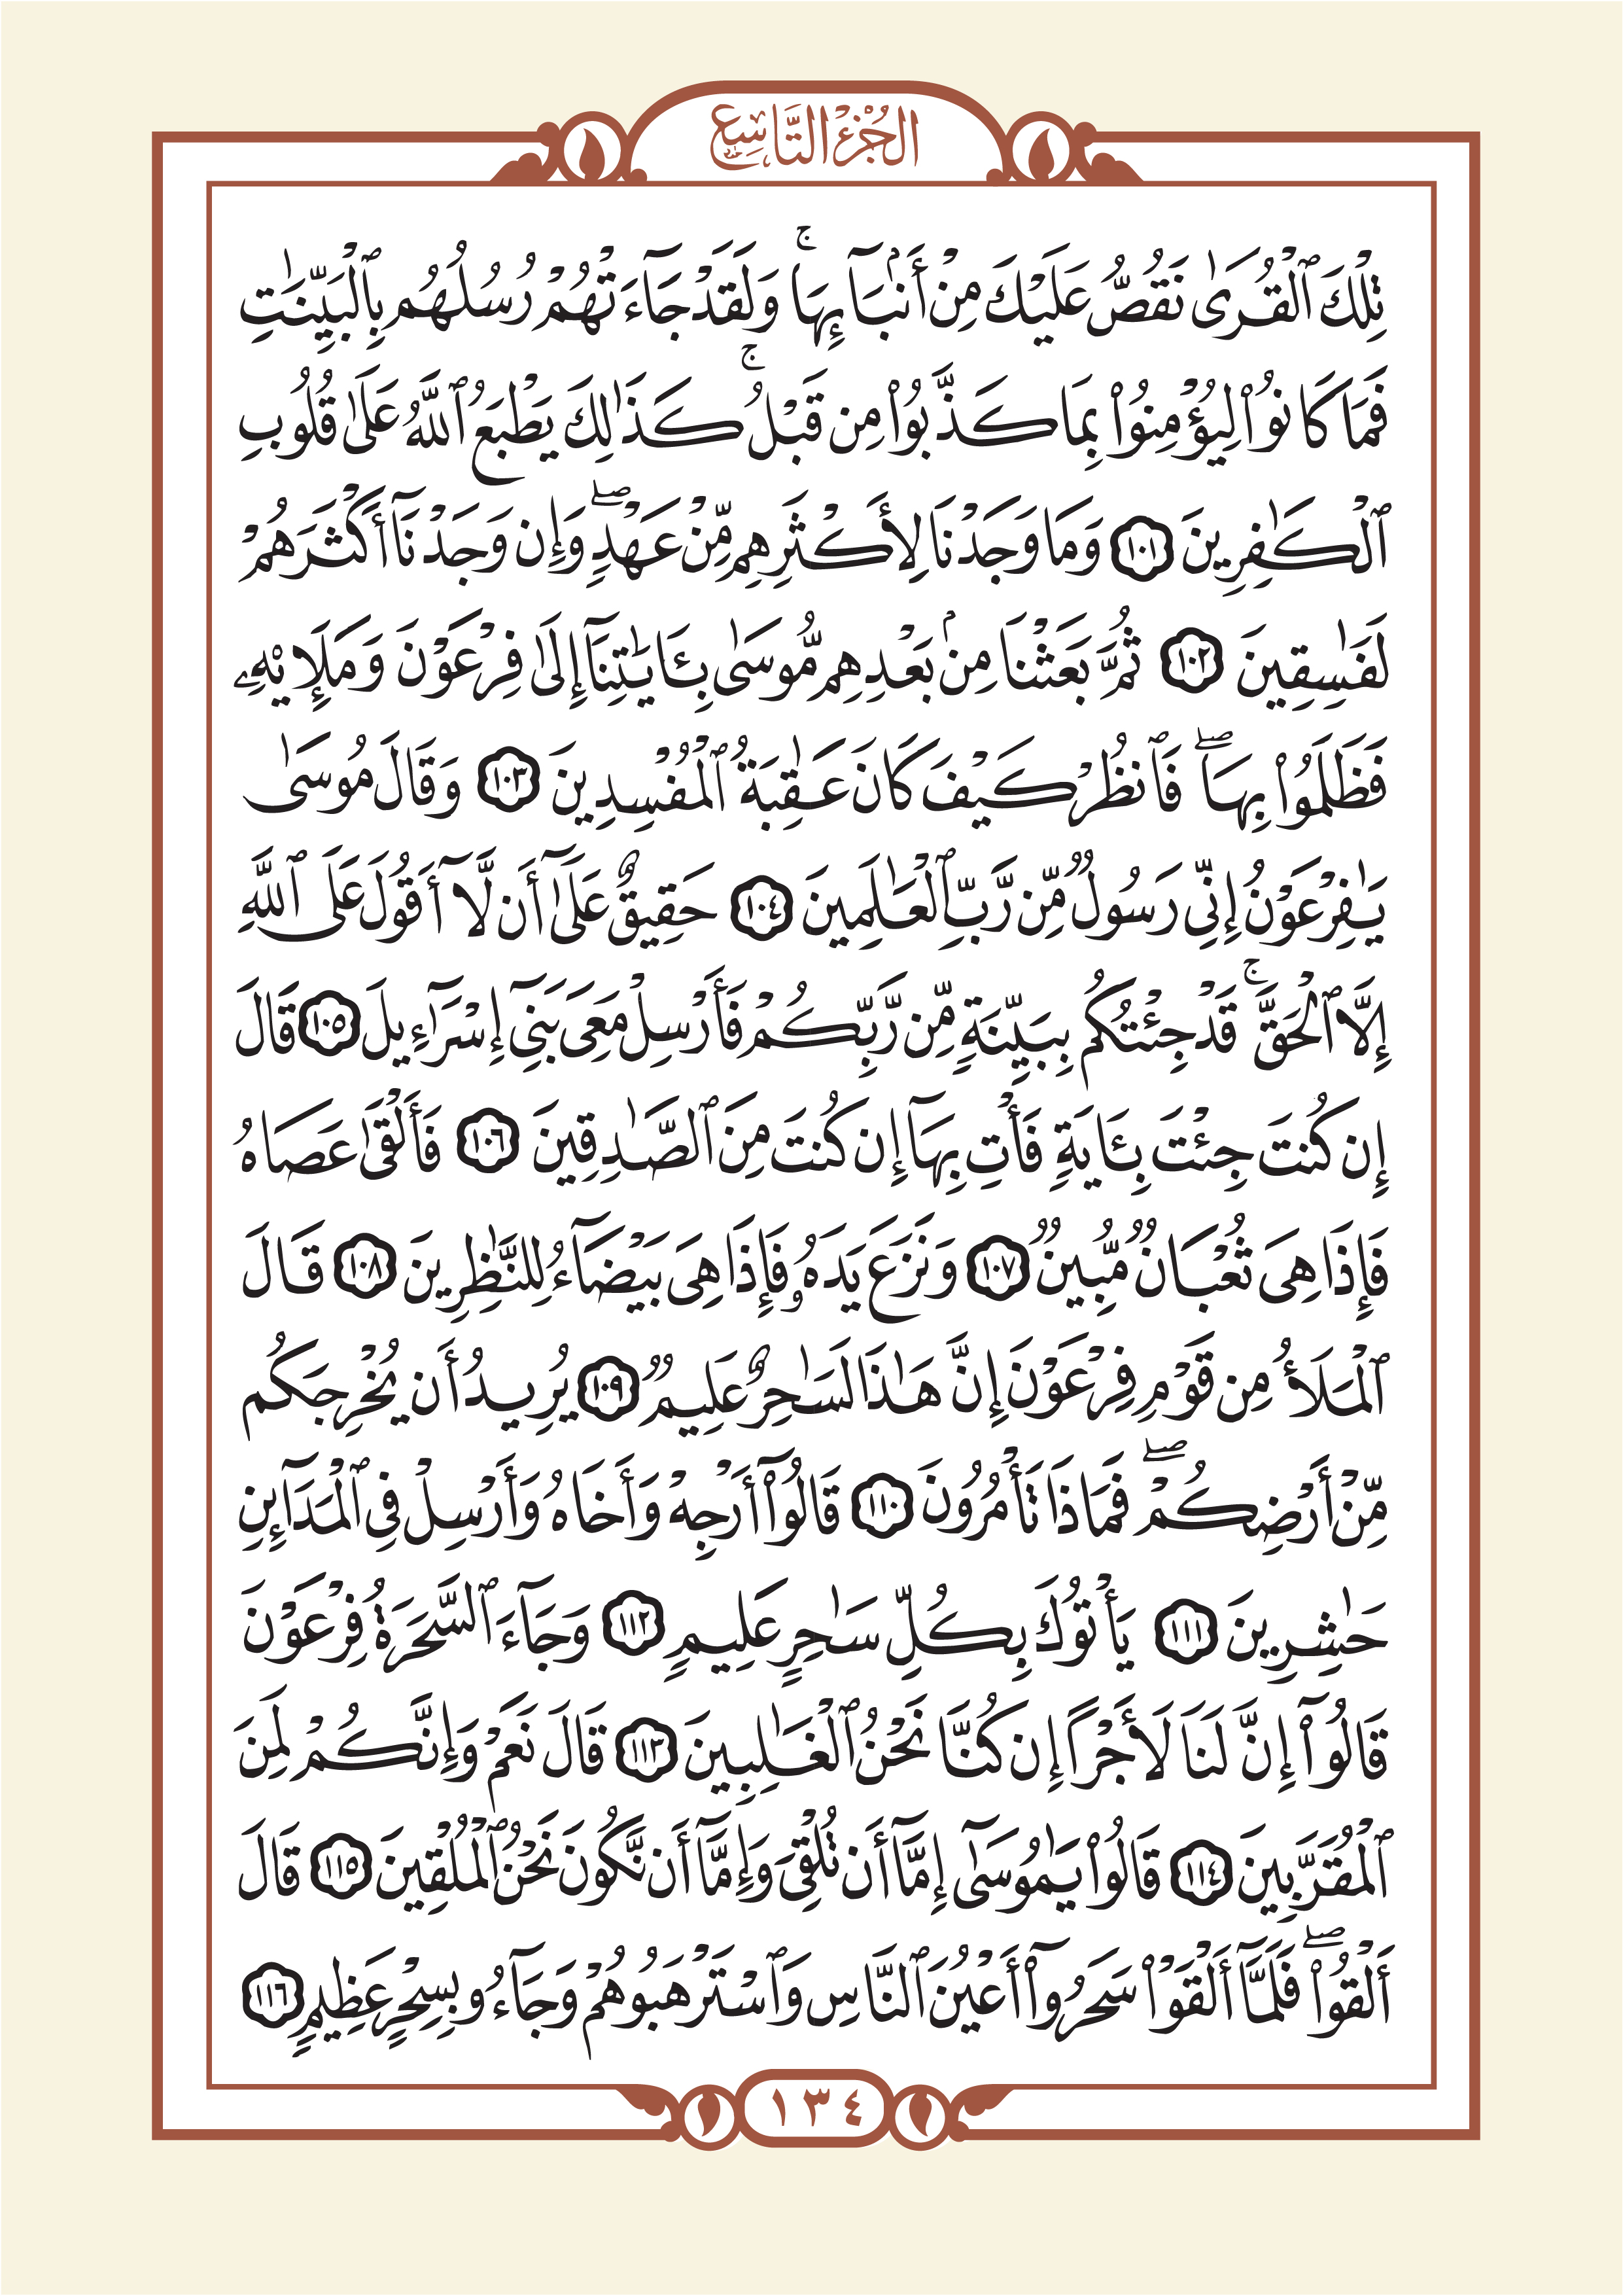 الجزء التاسع
تِلۡكَ ٱلۡقُرَىٰ نَقُصُّ عَلَيۡكَ مِنۡ أَنۢبَآئِهَاۚ وَلَقَدۡ جَآءَتۡهُمۡ رُسُلُهُم بِٱلۡبَيِّنَٰتِ
فَمَا كَانُواْ لِيُؤۡمِنُواْ بِمَا كَذَّبُواْ مِن قَبۡلُۚ كَذَٰلِكَ يَطۡبَعُ ٱللَّهُ عَلَىٰ قُلُوبِ
ٱلۡكَٰفِرِينَ ١٠١ وَمَا وَجَدۡنَا لِأَكۡثَرِهِم مِّنۡ عَهۡدٖۖ وَإِن وَجَدۡنَآ أَكۡثَرَهُمۡ
لَفَٰسِقِينَ ١٠٢ ثُمَّ بَعَثۡنَا مِنۢ بَعۡدِهِم مُّوسَىٰ بِـَٔايَٰتِنَآ إِلَىٰ فِرۡعَوۡنَ وَمَلَإِيْهِۦ
فَظَلَمُواْ بِهَاۖ فَٱنظُرۡ كَيۡفَ كَانَ عَٰقِبَةُ ٱلۡمُفۡسِدِينَ ١٠٣ وَقَالَ مُوسَىٰ
يَٰفِرۡعَوۡنُ إِنِّي رَسُولٞ مِّن رَّبِّ ٱلۡعَٰلَمِينَ ١٠٤ حَقِيقٌ عَلَىٰٓ أَن لَّآ أَقُولَ عَلَى ٱللَّهِ
إِلَّا ٱلۡحَقَّۚ قَدۡ جِئۡتُكُم بِبَيِّنَةٖ مِّن رَّبِّكُمۡ فَأَرۡسِلۡ مَعِيَ بَنِيٓ إِسۡرَٰٓءِيلَ ١٠٥ قَالَ
إِن كُنتَ جِئۡتَ بِـَٔايَةٖ فَأۡتِ بِهَآ إِن كُنتَ مِنَ ٱلصَّٰدِقِينَ ١٠٦ فَأَلۡقَىٰ عَصَاهُ
فَإِذَا هِيَ ثُعۡبَانٞ مُّبِينٞ ١٠٧ وَنَزَعَ يَدَهُۥ فَإِذَا هِيَ بَيۡضَآءُ لِلنَّٰظِرِينَ ١٠٨ قَالَ
ٱلۡمَلَأُ مِن قَوۡمِ فِرۡعَوۡنَ إِنَّ هَٰذَا لَسَٰحِرٌ عَلِيمٞ ١٠٩ يُرِيدُ أَن يُخۡرِجَكُم
مِّنۡ أَرۡضِكُمۡۖ فَمَاذَا تَأۡمُرُونَ ١١٠ قَالُوٓاْ أَرۡجِهۡ وَأَخَاهُ وَأَرۡسِلۡ فِي ٱلۡمَدَآئِنِ
حَٰشِرِينَ ١١١ يَأۡتُوكَ بِكُلِّ سَٰحِرٍ عَلِيمٖ ١١٢ وَجَآءَ ٱلسَّحَرَةُ فِرۡعَوۡنَ
قَالُوٓاْ إِنَّ لَنَا لَأَجۡرًا إِن كُنَّا نَحۡنُ ٱلۡغَٰلِبِينَ ١١٣ قَالَ نَعَمۡ وَإِنَّكُمۡ لَمِنَ
ٱلۡمُقَرَّبِينَ ١١٤ قَالُواْ يَٰمُوسَىٰٓ إِمَّآ أَن تُلۡقِيَ وَإِمَّآ أَن نَّكُونَ نَحۡنُ ٱلۡمُلۡقِينَ ١١٥ قَالَ
أَلۡقُواْۖ فَلَمَّآ أَلۡقَوۡاْ سَحَرُوٓاْ أَعۡيُنَ ٱلنَّاسِ وَٱسۡتَرۡهَبُوهُمۡ وَجَآءُو بِسِحۡرٍ عَظِيمٖ ١١٦
١٣٤